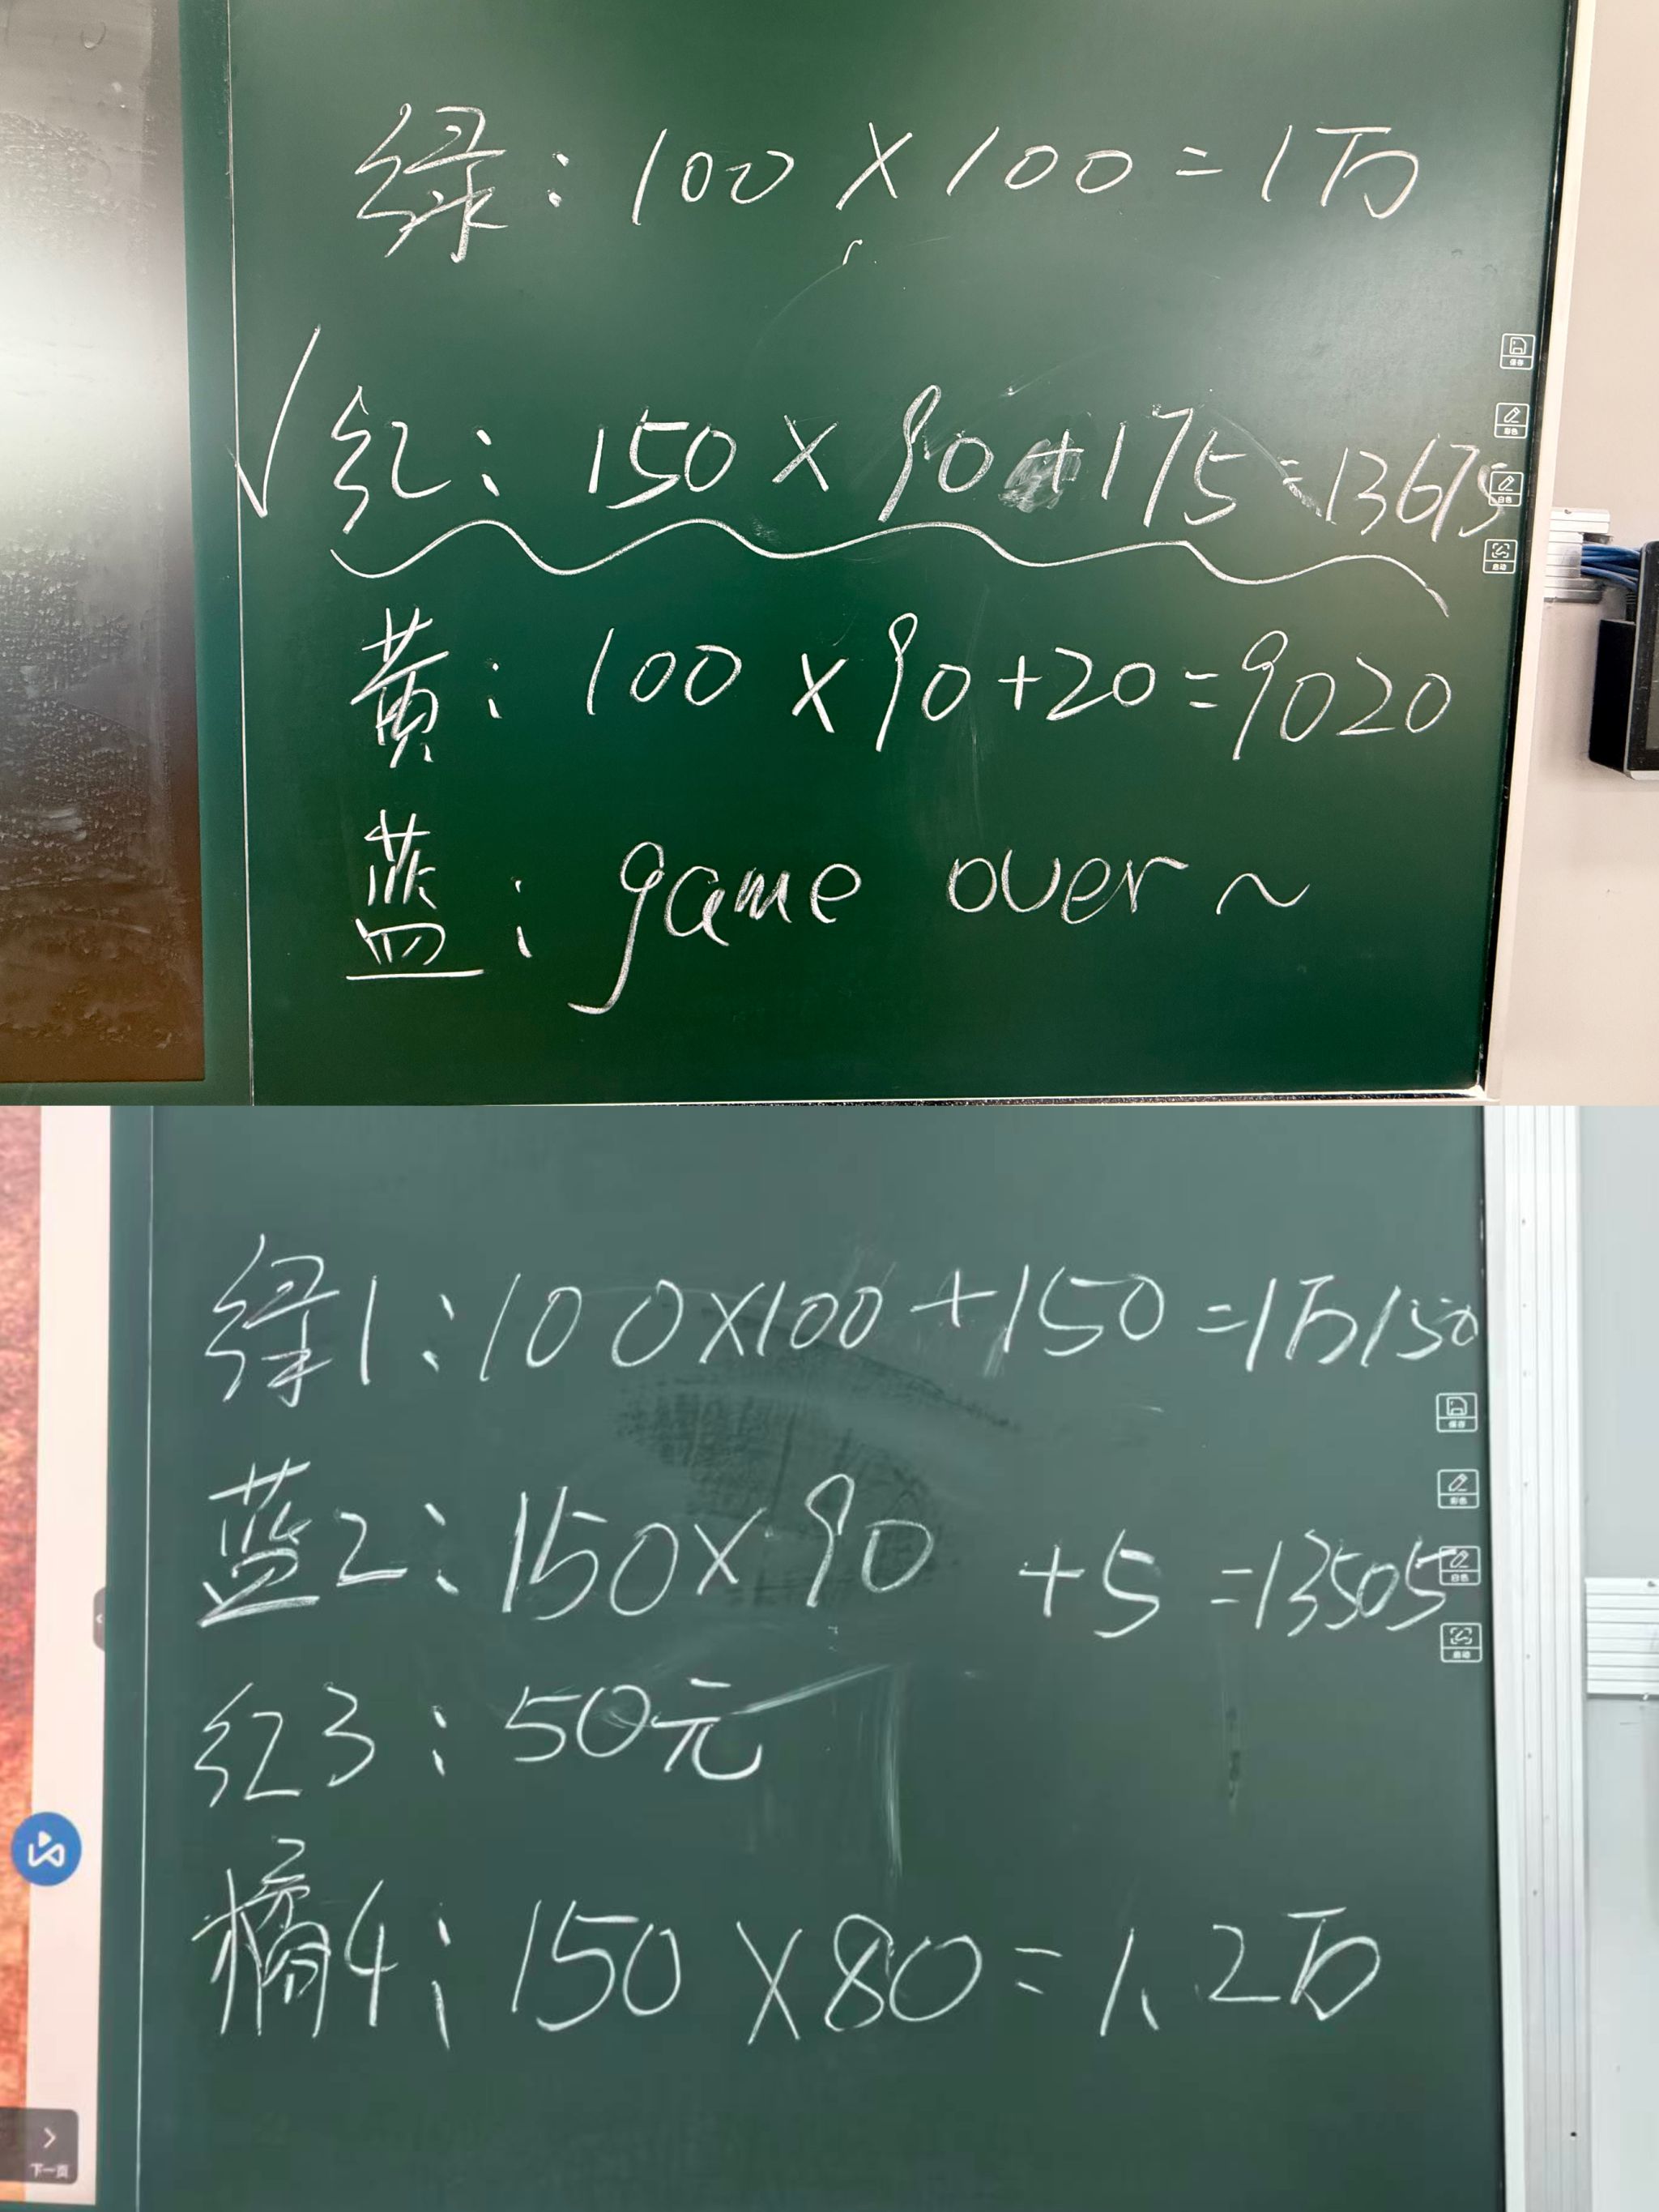 绿：100×100=1万
保存
√红：150×90+175=13675
彩色
白色
启动
黄：100×90+20=9020
蓝：game over~
绿1：100×100+150=1万150
保存
蓝2：150×90+5=13505
彩色
白色
启动
红3：50元
橘4：150×80=1.2万
下一页